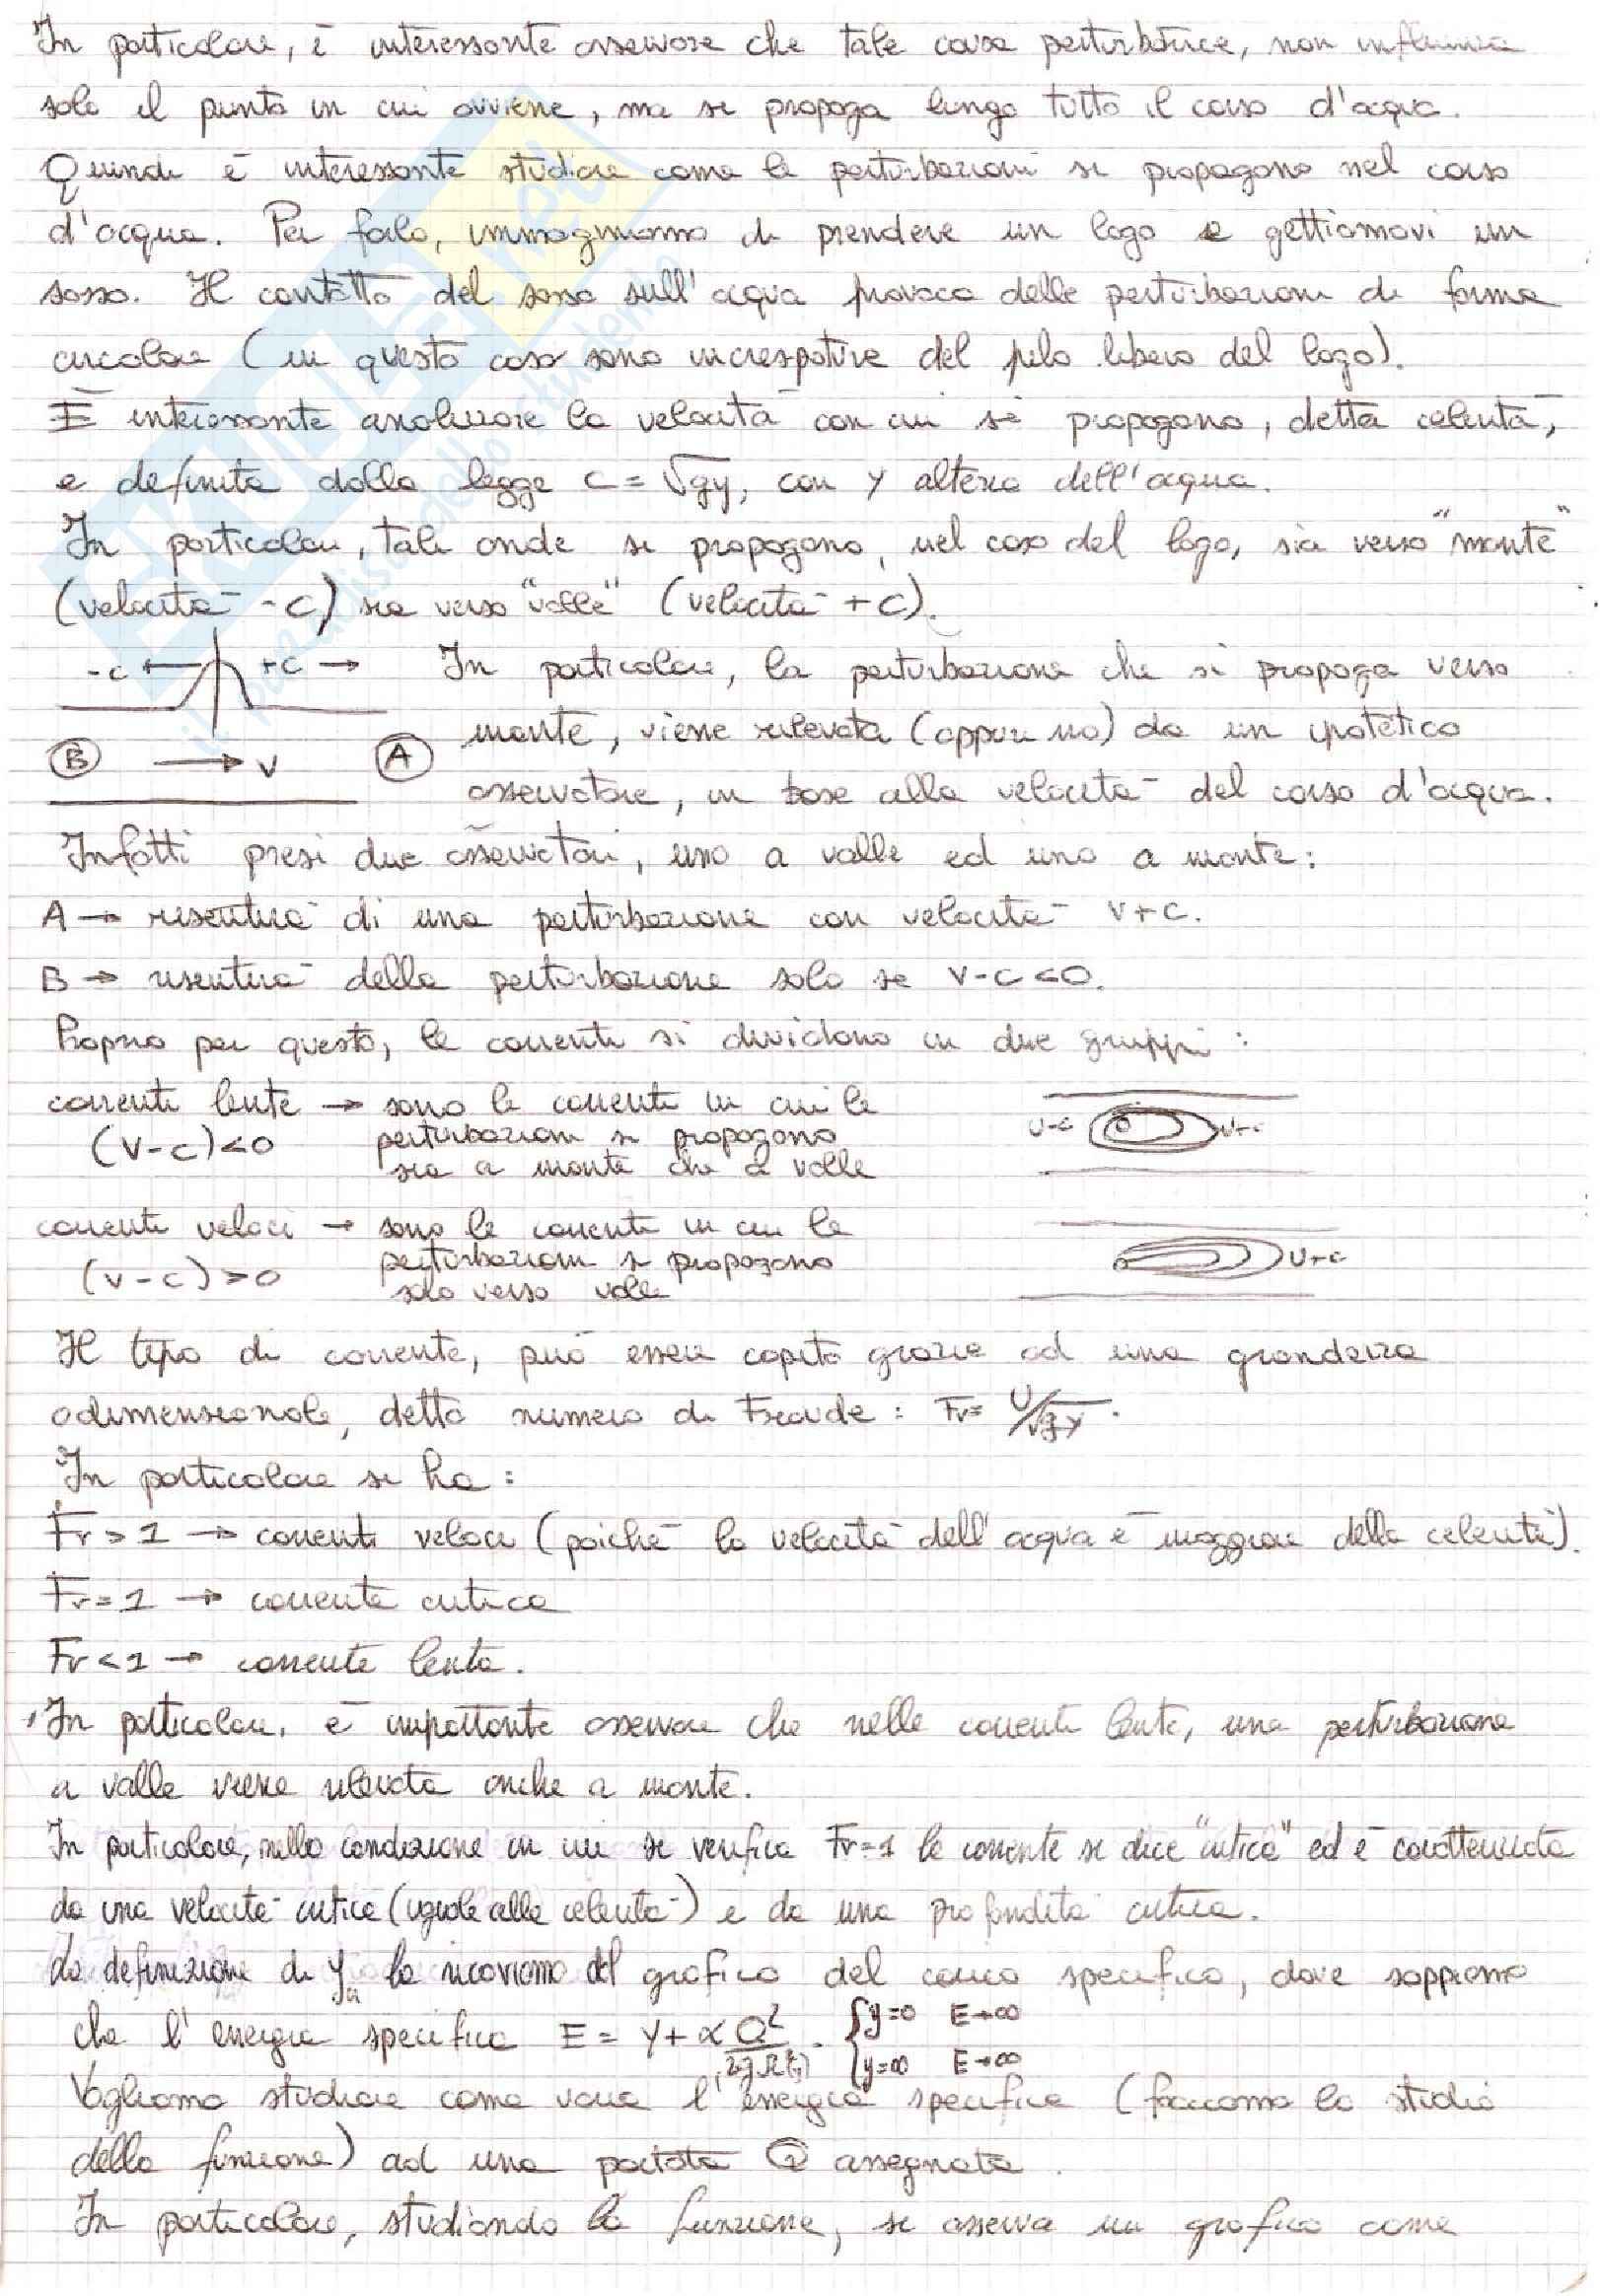 In particolare, è interessante osservare che tale causa perturbatrice, non influenza
solo il punto in cui avviene, ma si propaga lungo tutto il corso d'acqua.
Quindi è interessante studiare come le perturbazioni si propagano nel corso
d'acqua. Per farlo, immaginiamo di prendere un lago e gettiamovi un
sasso. Il contatto del sasso sull'acqua provoca delle perturbazioni di forma
circolare (in questo caso sono increspature del pelo libero del lago).
È interessante analizzare la velocità con cui si propagano, detta celerità,
e definita dalla legge c = √gy, con y altezza dell'acqua.
In particolare, tali onde si propagano, nel caso del lago, sia verso "monte"
(velocità -c) sia verso "valle" (velocità +c).
-c ← +c → In particolare, la perturbazione che si propaga verso
monte, viene rilevata (oppure no) da un ipotetico
B → v A
osservatore, in base alla velocità del corso d'acqua.
Infatti presi due osservatori, uno a valle ed uno a monte:
A → risentirà di una perturbazione con velocità v+c.
B → risentirà della perturbazione solo se v-c<0.
Proprio per questo, le correnti si dividono in due gruppi:
correnti lente → sono le correnti in cui le
(v-c)<0 perturbazioni si propagano U-c U+c
sia a monte che a valle
correnti veloci → sono le correnti in cui le
(v-c)>0 perturbazioni si propagano U+c
solo verso valle
Il tipo di corrente, può essere capito grazie ad una grandezza
adimensionale, detta numero di Froude: Fr= U/√gy.
In particolare si ha:
Fr>1 → correnti veloci (poiché la velocità dell'acqua è maggiore della celerità).
Fr=1 → corrente critica
Fr<1 → corrente lenta.
In particolare, è importante osservare che nelle correnti lente, una perturbazione
a valle viene rilevata anche a monte.
In particolare, nella condizione in cui si verifica Fr=1 la corrente si dice "critica" ed è caratterizzata
da una velocità critica (uguale alla celerità) e da una profondità critica.
La definizione di y la ricaviamo dal grafico del carico specifico, dove sappiamo
che l'energia specifica E = y + α Q²/2gΩ²(y). {y=0 E→∞
y=∞ E→∞
Vogliamo studiare come varia l'energia specifica (facciamo lo studio
della funzione) ad una portata Q assegnata.
In particolare, studiando la funzione, si osserva un grafico come